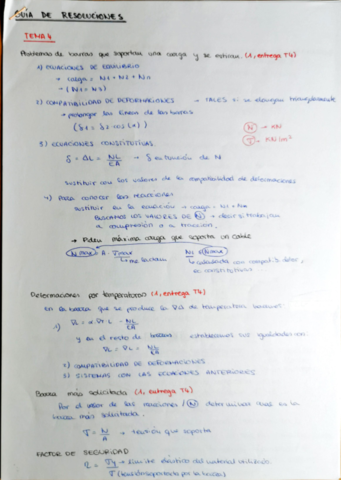 GUIA DE RESOLUCIONES
TEMA 4
Problemas de barras que soportan una carga y se estiran. (1, entrega T4)
1) ECUACIONES DE EQUILIBRIO
→ carga = N1 + N2 + N3
→ (N1 = N3)
2) COMPATIBILIDAD DE DEFORMACIONES → TALES si se alargan
→ prolongar las líneas de las barras
(δ1 = δ2 cos(α))
N → KN
σ → KN/m²
3) ECUACIONES CONSTITUTIVAS
δ = ΔL = NL/EA → δ en función de N
sustituir con los valores de la compatibilidad de deformaciones
4) Para conocer las reacciones
sustituir en la ecuación → carga =
BUSCAMOS LOS VALORES DE N → decir si trabajan
a compresión o a tracción.
→ Piden máxima carga que soporta un cable
Nmax = A · σmax
me lo dan
Deformaciones por temperaturas (1, entrega T4)
En la barra que se produce la de temperatura tenemos:
1)
y en el resto de barras
NL/EA
2) COMPATIBILIDAD DE DEFORMACIONES
3) SISTEMAS CON LAS ECUACIONES ANTERIORES
Barra más solicitada (1, entrega T4)
Por el valor de las reacciones / N determinar cual es la
barra más solicitada.
σ = N/A → tensión que soporta
FACTOR DE SEGURIDAD
→ límite elástico del material utilizado
σ (tensión soportada por la barra)